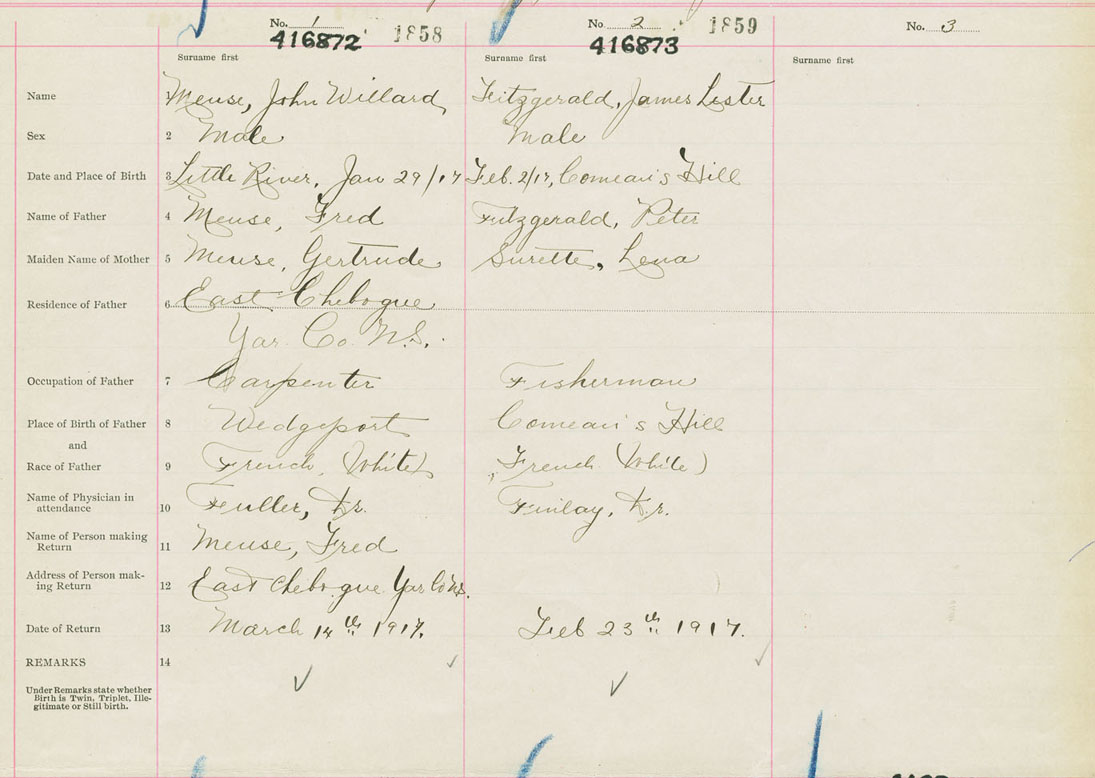 No. 1 1858 No. 2 1859 No. 3
416872 416873
Surname first Surname first Surname first
Name Meuse, John Willard Fitzgerald, James Lester
Sex 2 Male Male
Date and Place of Birth 3 Little River, Jan 29/17 Feb. 2/17, Comeau's Hill
Name of Father 4 Meuse, Fred Fitzgerald, Peter
Maiden Name of Mother 5 Meuse, Gertrude Surette, Lena
Residence of Father 6 East Chebogue
Yar. Co. N.S.
Occupation of Father 7 Carpenter Fisherman
Place of Birth of Father 8 Wedgeport Comeau's Hill
and
Race of Father 9 French, (White) French (White)
Name of Physician in
attendance 10 Fuller, Dr. Finlay, Dr.
Name of Person making
Return 11 Meuse, Fred
Address of Person mak-
ing Return 12 East Chebogue Yar Co N.S.
Date of Return 13 March 14th 1917. Feb 23th 1917.
REMARKS 14
Under Remarks state whether
Birth is Twin, Triplet, Ille-
gitimate or Still birth.